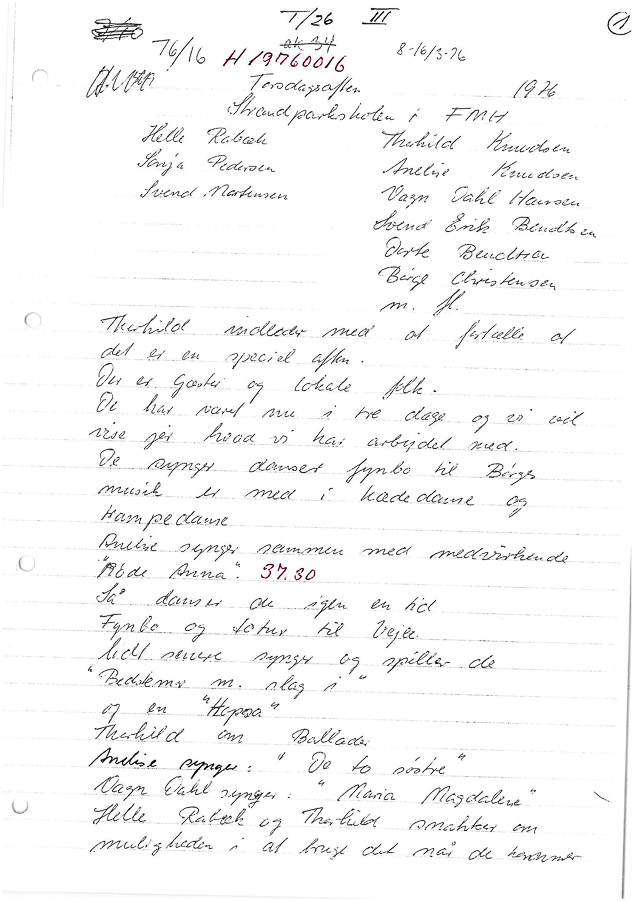 T/26 III
1
76/16 H 19760016 8-16/3-76
Torsdagsaften 1976
Strandparkskolen i FMH
Helle Rabæk Thorkild Knudsen
Sonja Pedersen Anelise Knudsen
Svend Mortensen Vagn Dahl Hansen
Svend Erik Bendtsen
Dorte Bendtsen
Børge Christensen
m. fl.
Thorkild indleder med at fortælle at
det er en speciel aften.
Der er Gæster og lokale folk.
De har været nu i tre dage og vi vil
vise jer hvad vi har arbejdet med.
De synger danser fynbo til Børges
musik er med i kædedanse og
trampedanse
Anelise synger sammen med medvirkende
"Møde Anna". 37.30
Så danser de igen en tid
Fynbo og totur til Vejle
lidt senere synger og spiller de
"Bedstemor m. slag i"
og en "Hopsa"
Thorkild om Ballader
Anelise synger: "De to søstre"
Vagn Dahl synger: "Maria Magdalene"
Helle Rabæk og Thorkild snakker om
muligheden i at bruge det når de kommer